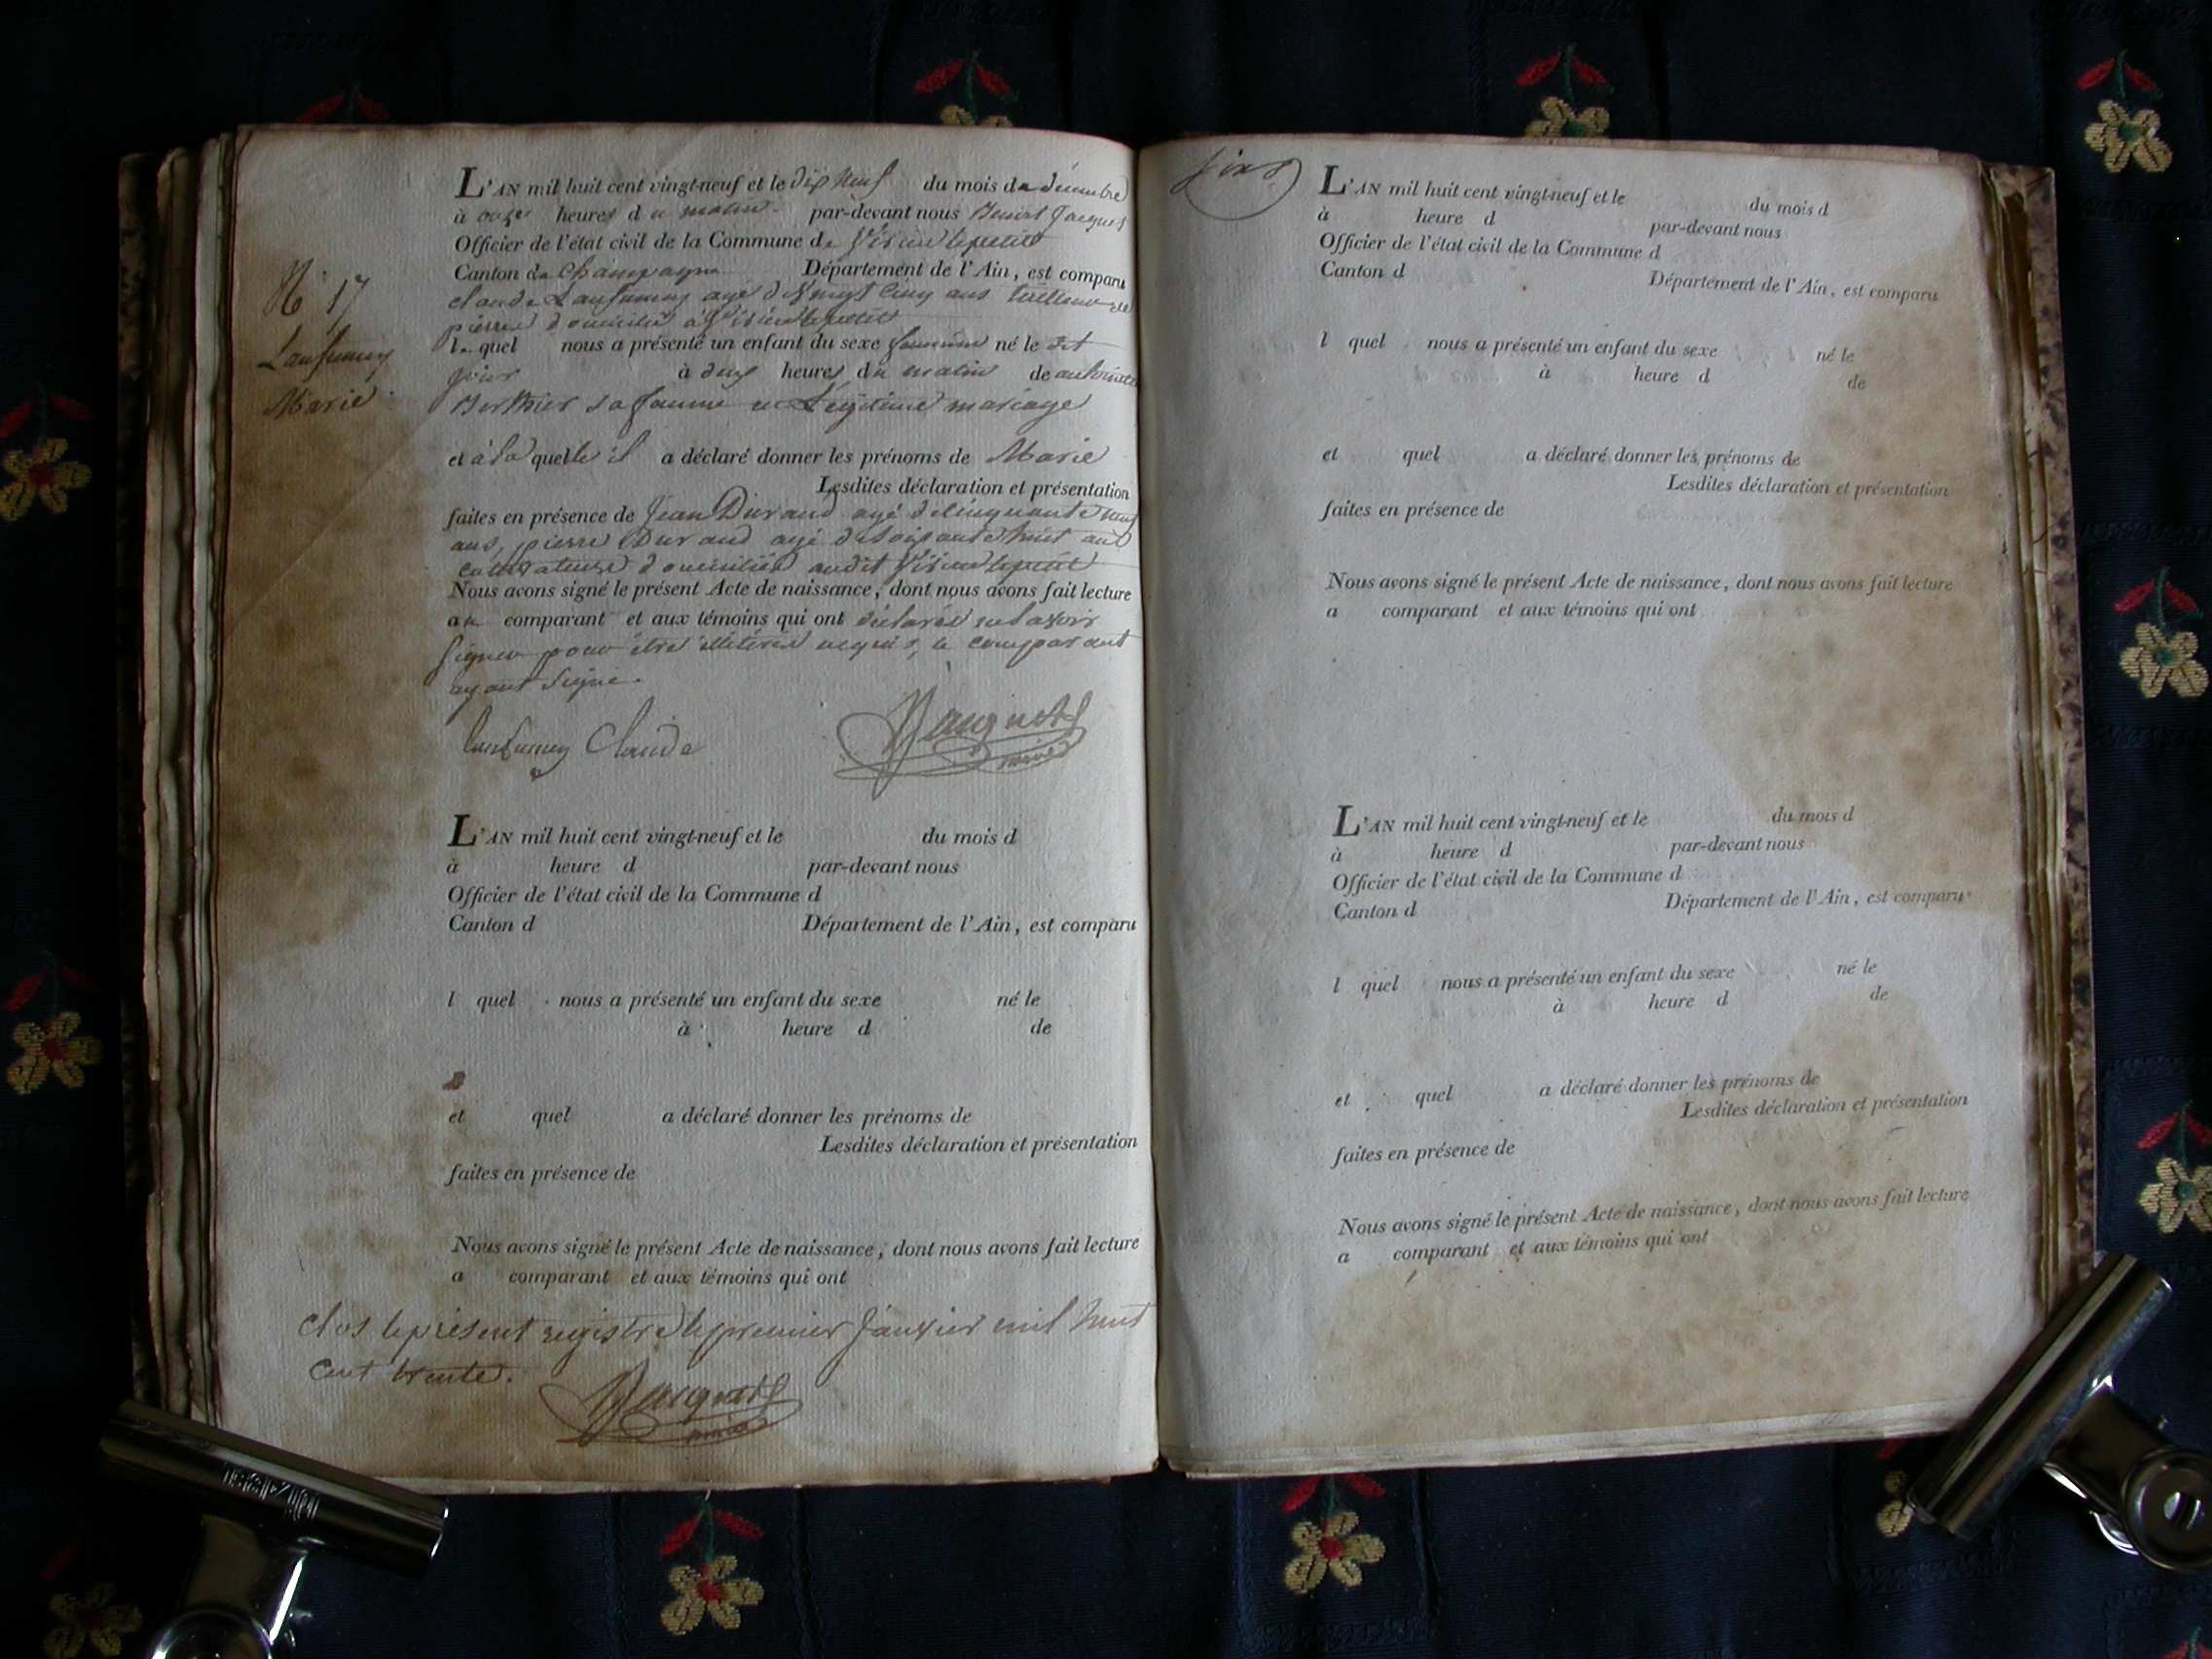 L'AN mil huit cent vingt-neuf et le dix neuf du mois de décembre
à onze heures du matin par-devant nous Benoit Jacques
Officier de l'état civil de la Commune de Virieu le petit
Canton de Champagne Département de l'Ain, est comparu
claude Lanfumey agé de vingt Cinq ans tailleur de
pierres domicilié à Virieu le petit
N° 17
Lanfumey
Marie
le quel nous a présenté un enfant du sexe feminin né le dit
jour à deux heures du matin de
Berthier sa femme en Légitime mariage
et à la quelle il a déclaré donner les prénoms de Marie
Lesdites déclaration et présentation
faites en présence de Jean Durand agé de cinquante neuf
ans, pierre Durand agé de soixante huit ans
cultivateurs domiciliés audit Virieu le petit
Nous avons signé le présent Acte de naissance, dont nous avons fait lecture
au comparant et aux témoins qui ont déclaré ne savoir
signer pour être illitérés requis, le comparant
ayant Signé.
lanfumey Claude
maire
L'AN mil huit cent vingt-neuf et le du mois d
à heure d par-devant nous
Officier de l'état civil de la Commune d
Canton d Département de l'Ain, est comparu
l quel nous a présenté un enfant du sexe né le
à heure d de
et quel a déclaré donner les prénoms de
Lesdites déclaration et présentation
faites en présence de
Nous avons signé le présent Acte de naissance, dont nous avons fait lecture
a comparant et aux témoins qui ont
Clos le présent registre le premier Janvier mil huit
cent trente.
maire
L'AN mil huit cent vingt-neuf et le du mois d
à heure d par-devant nous
Officier de l'état civil de la Commune d
Canton d Département de l'Ain, est comparu
l quel nous a présenté un enfant du sexe né le
à heure d de
et quel a déclaré donner les prénoms de
Lesdites déclaration et présentation
faites en présence de
Nous avons signé le présent Acte de naissance, dont nous avons fait lecture
a comparant et aux témoins qui ont
L'AN mil huit cent vingt-neuf et le du mois d
à heure d par-devant nous
Officier de l'état civil de la Commune d
Canton d Département de l'Ain, est comparu
l quel nous a présenté un enfant du sexe né le
à heure d de
et quel a déclaré donner les prénoms de
Lesdites déclaration et présentation
faites en présence de
Nous avons signé le présent Acte de naissance, dont nous avons fait lecture
a comparant et aux témoins qui ont